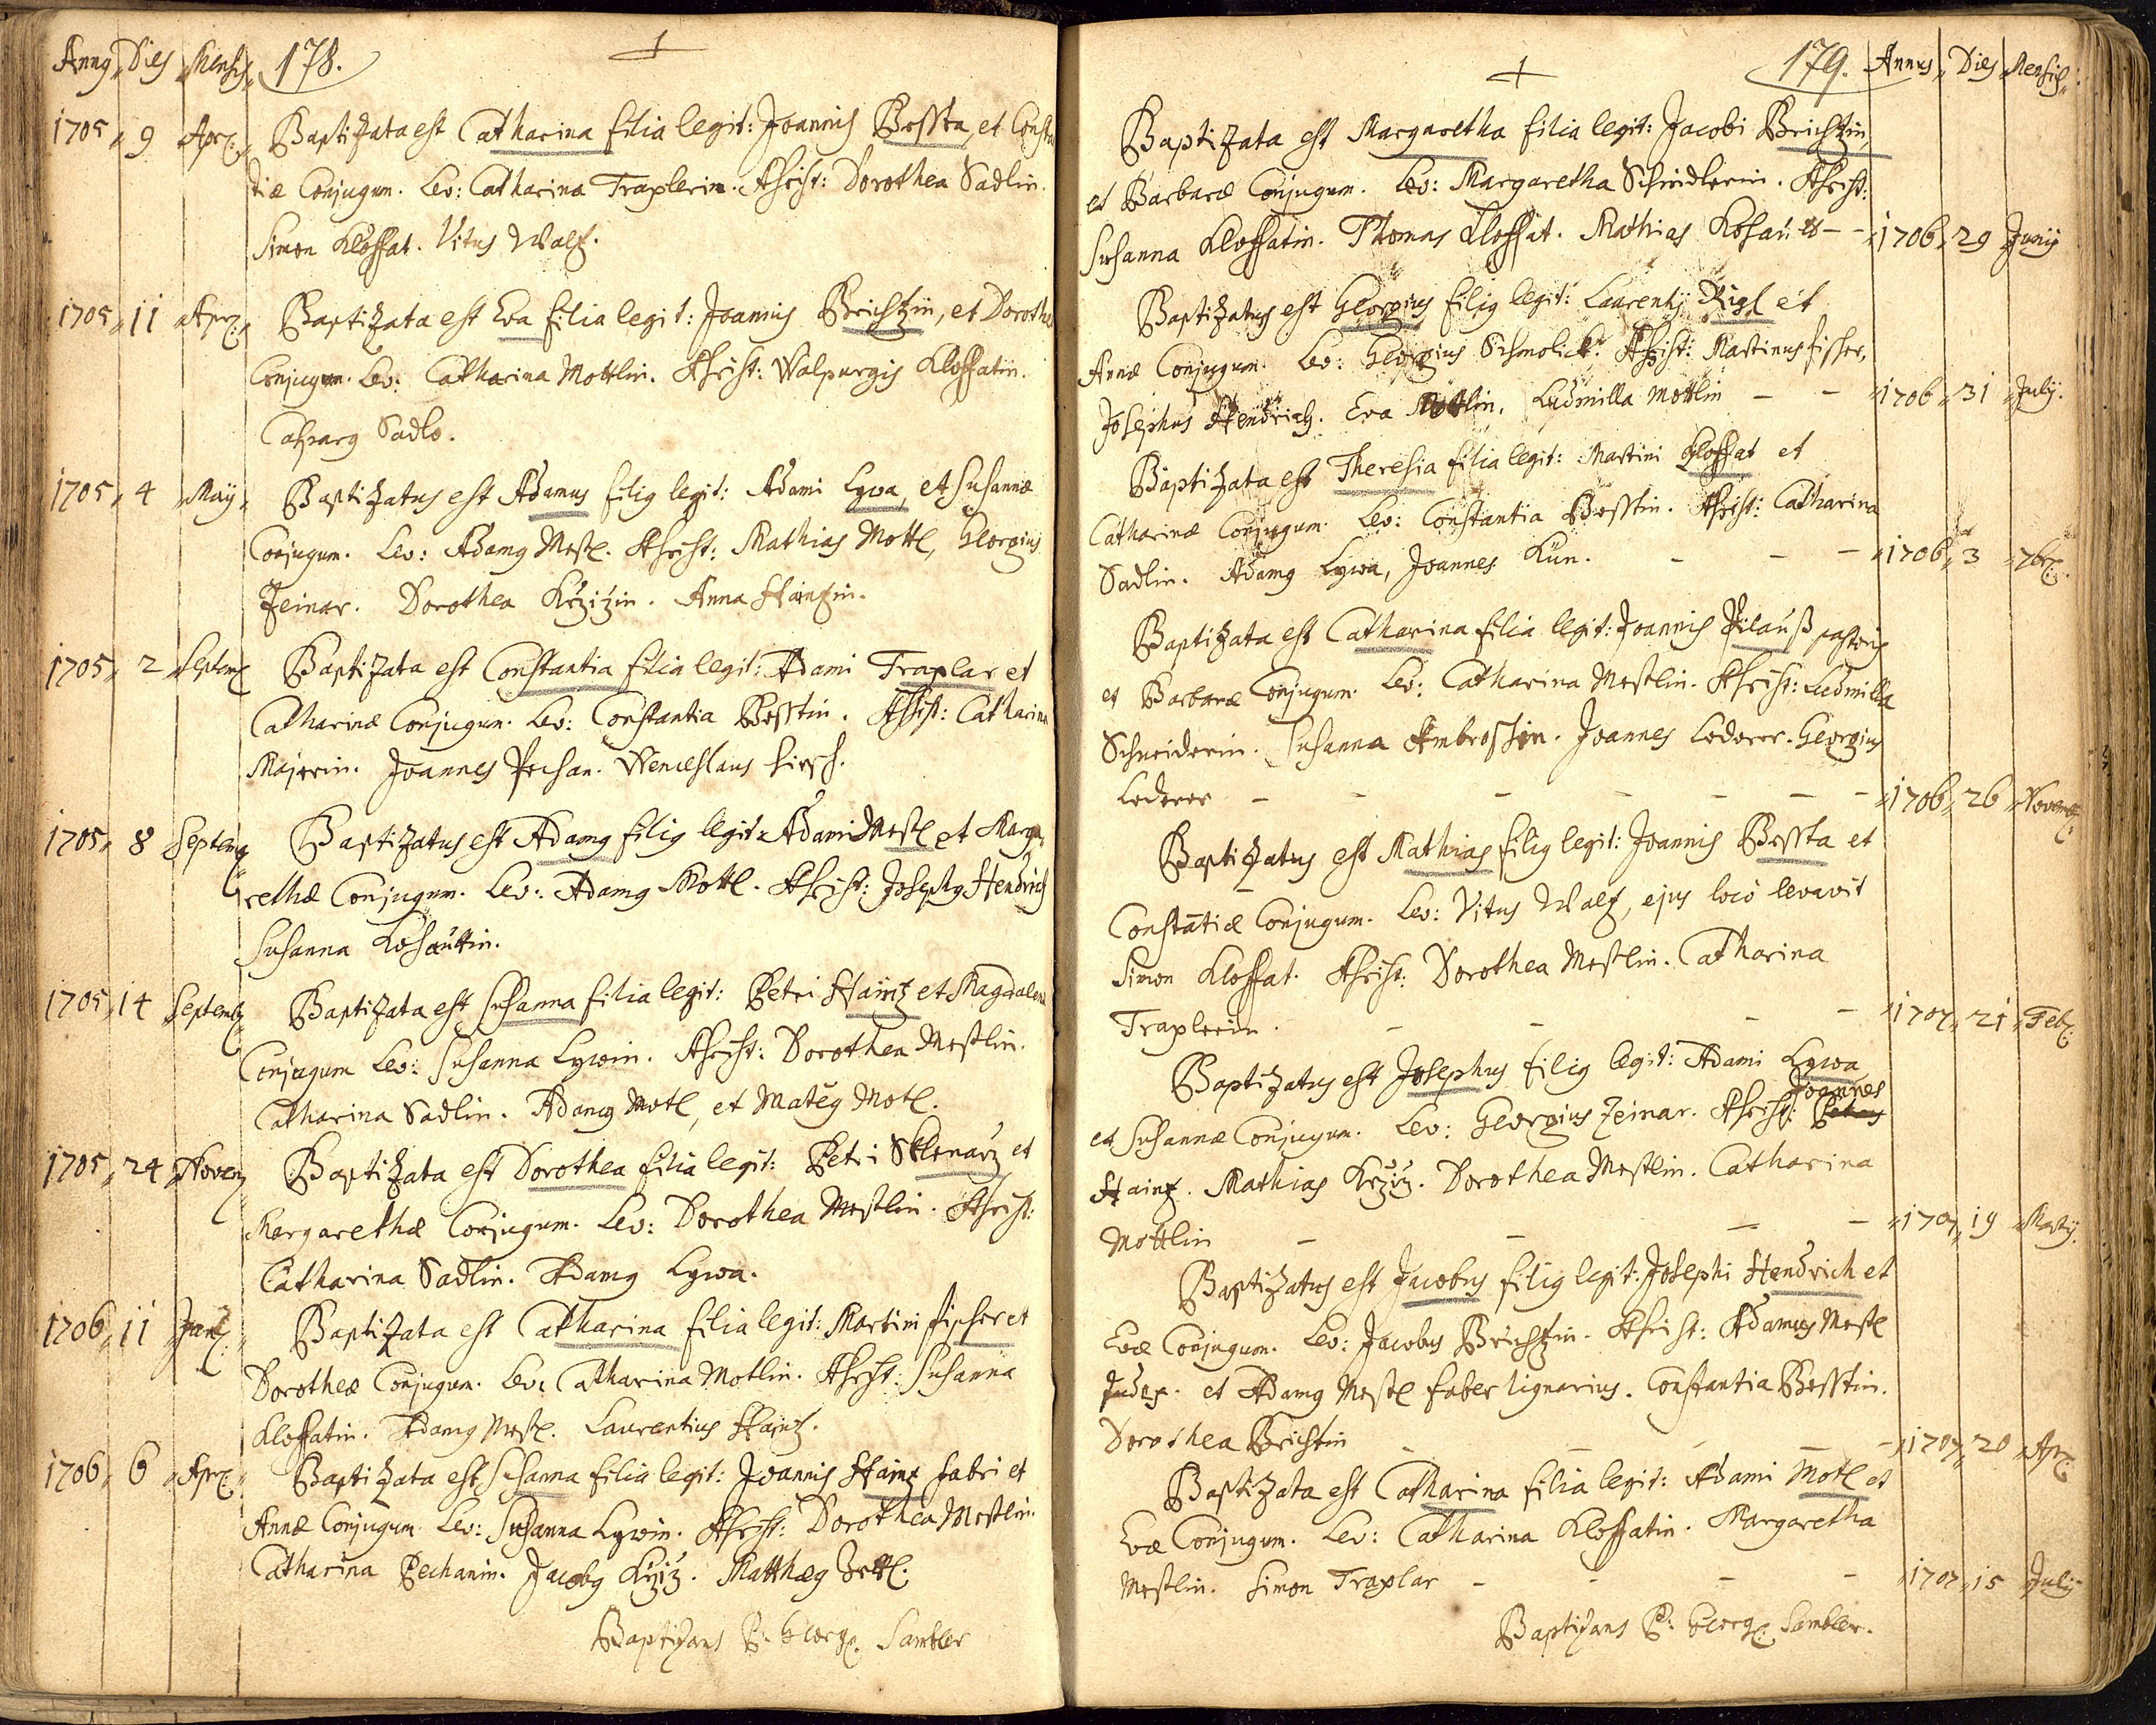 Annus Dies Mensis 178.
1705 9 Apr: Baptizata est Catharina filia legit: Joannis Bessta, et Constan
tiæ Conjugum. Lev: Catharina Traplerin. Assist: Dorothea Sadlin.
Simon Kloffat. Vitus Walf.
1705 11 Apr: Baptizata est Eva filia legit: Joannis Brichzin, et Dorotheæ
Conjugum. Lev: Catharina Mottlin. Assist: Walpurgis Kloffatin.
Casparg Sadlo.
1705 4 Maÿ Baptizatus est Adamus filig legit: Adami Lywa, et Susannæ
Conjugum. Lev: Adamg Mestl. Assist: Mathias Mottl, Georgius
Zeinar. Dorothea Krzizin. Anna Hainzin.
1705 2 Septem Baptizata est Constantia filia legit: Adami Traplar et
Catharinæ Conjugum. Lev: Constantia Besstin. Assist: Catharina
Majerin. Joannes Pechan. Wenceslaus Hirsch.
1705 8 Septem Baptizatus est Adamg filig legit: Adami Mestl et Marga
rethæ Conjugum. Lev: Adamg Mottl. Assist: Josephg Hendrich
Susanna Kohauttin.
1705 14 Septemb Baptizata est Susanna filia legit: Petri Haintz et Magdalenæ
Conjugum Lev: Susanna Lywin. Assist: Dorothea Mestlin.
Catharina Sadlin. Adamg Motl, et Mateg Motl.
1705 24 Novem Baptizata est Dorothea filia legit: Petri Sklenarz et
Margarethæ Conjugum. Lev: Dorothea Mestlin. Assist:
Catharina Sadlin. Adamg Lywa.
1706 11 Jan: Baptizata est Catharina filia legit: Martini Fischer et
Dorotheæ Conjugum. Lev: Catharina Motlin. Assist: Susanna
Kloffatin. Adamg Mestl. Laurentius Haintz.
1706 6 Apr: Baptizata est Susanna filia legit: Joannis Hainz fabri et
Annæ Conjugum Lev: Susanna Lywin. Assist: Dorothea Mestlin.
Catharina Pechanin. Jacobg Krziz. Matthæg Zettl.
Baptizans P: Georg: Sambler
179. Annus Dies Mensis
Baptizata est Margaretha filia legit: Jacobi Brichzin,
et Barbaræ Conjugum. Lev: Margaretha Schindlerin. Assist:
Susanna Kloffatin. Thomas Kloffat. Mathias Kohaut - - 1706 29 Junij
Baptizatus est Georgius filig legit: Laurentij Rigl et
Annæ Conjugum. Lev: Georgius Schmolick. Assist: Martinus Fischer,
Josephus Hendrich. Eva Mottlin. Ludmilla Mottlin - - 1706 31 Julij.
Baptizata est Theresia filia legit: Martini Kloffat et
Catharinæ Conjugum. Lev: Constantia Besstin. Assist: Catharina
Sadlin. Adamg Lywa, Joannes Kun. - - - 1706 3 7br:
Baptizata est Catharina filia legit: Joannis Pilauß pastoris
et Barbaræ Conjugum. Lev: Catharina Mestlin. Assist: Ludmilla
Schneiderin. Susanna Ambrossin. Joannes Lederer. Georgius
Lederer - - - - - - 1706 26 Novemb:
Baptizatus est Mathias filig legit: Joannis Bessta et
Constātiæ Conjugum. Lev: Vitus Walf, ejus locô levavit
Simon Kloffat. Assist: Dorothea Mestlin. Catharina
Traplerin. - - - - 1707 21 Feb:
Baptizatus est Josephus filig legit: Adami Lywa
Joannes
et Susannæ Conjugum. Lev: Georgius Zeinar. Assist: Petrus
Hainz. Mathias Krziz. Dorothea Mestlin. Catharina
Mottlin - - - - 1707 19 Martij.
Baptizatus est Jacobus filig legit: Josephi Hendrich et
Evæ Conjugum. Lev: Jacobus Brichzin. Assist: Adamus Mestl
Judex. et Adamg Mestl faber lignarius. Constantia Besstin.
Dorothea Brichtin - - - - - 1707 20 Apr:
Baptizata est Catharina filia legit: Adami Motl et
Evæ Conjugum. Lev: Catharina Kloffatin. Margaretha
Mestlin. Simon Traplar - - - - 1707 15 Julij
Baptizans P: Georg: Sambler.